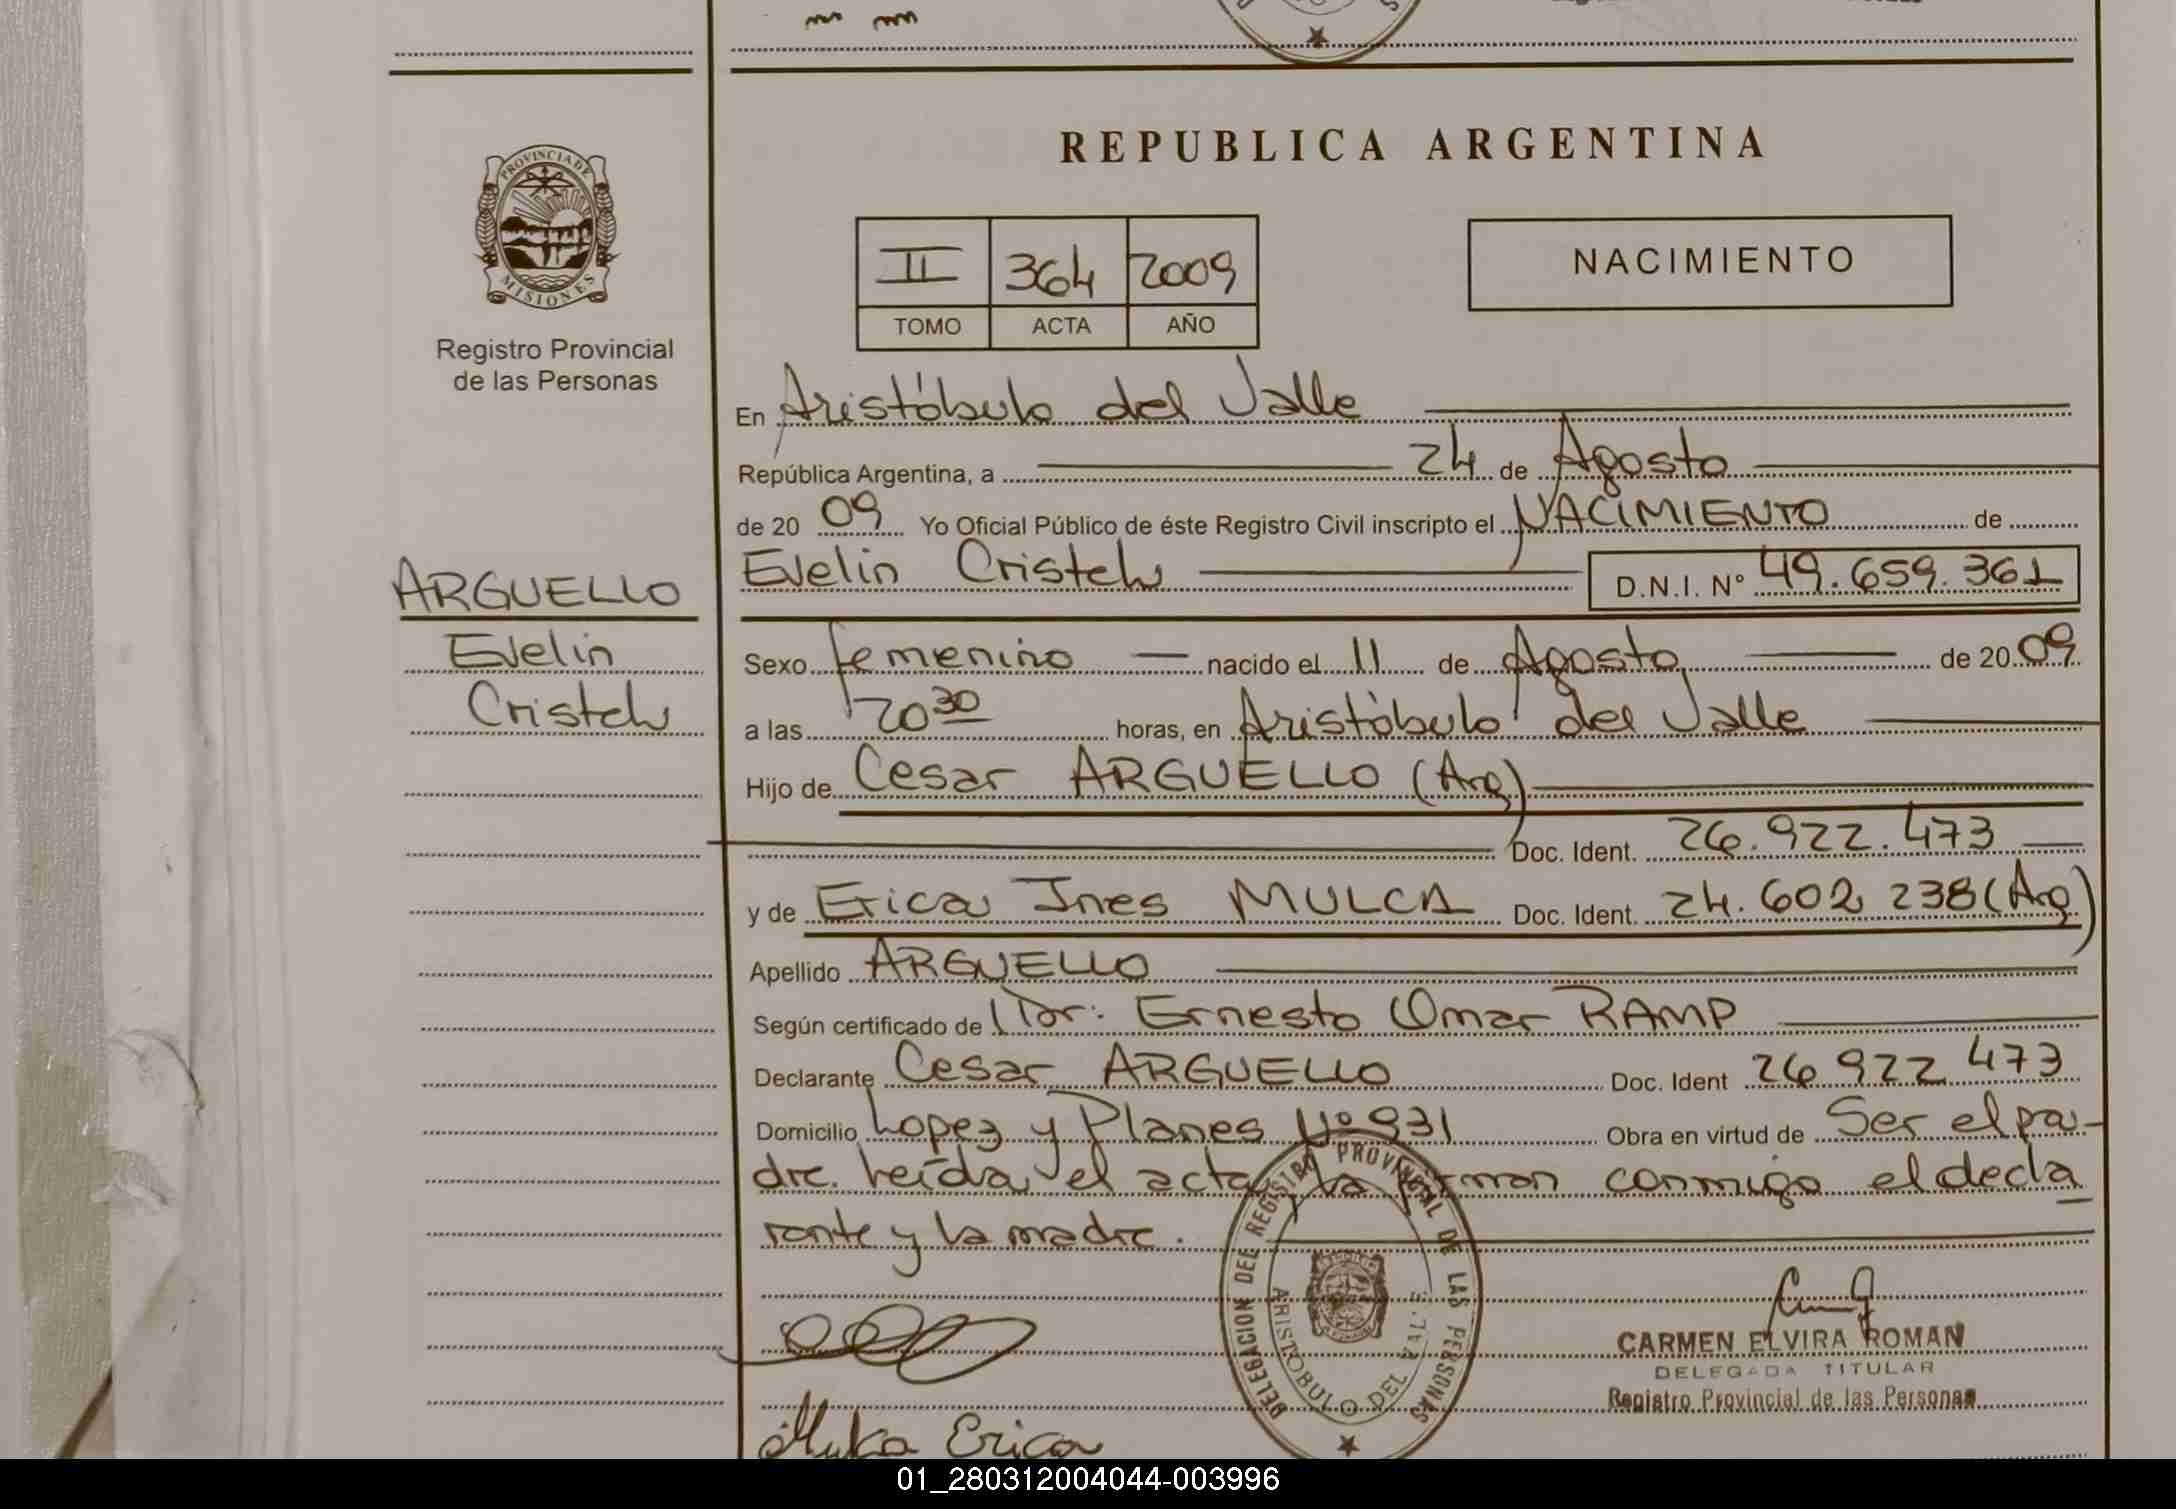 REPUBLICA ARGENTINA
PROVINCIA DE
MISIONES
Registro Provincial
de las Personas
II 364 2009
TOMO ACTA AÑO
NACIMIENTO
En Aristóbulo del Valle
República Argentina, a 24 de Agosto
de 20 09 Yo Oficial Público de éste Registro Civil inscripto el NACIMIENTO de
ARGUELLO
Evelin
Cristel
Evelin Cristel D.N.I. Nº 49.659.361
Sexo femenino nacido el 11 de Agosto de 20 09
a las 20 30 horas, en Aristóbulo del Valle
Hijo de Cesar ARGUELLO (Arg)
Doc. Ident. 26.922.473
y de Erica Ines MULCA Doc. Ident. 24.602 238 (Arg)
Apellido ARGUELLO
Según certificado de Dr: Ernesto Omar RAMP
Declarante Cesar ARGUELLO Doc. Ident 26 922 473
Domicilio Lopez y Planes Nº 931 Obra en virtud de Ser el pa-
dre. Leída el acta, la firman conmigo el decla
rante y la madre.
DELEGACION DEL REGISTRO PROVINCIAL DE LAS PERSONAS
ARISTOBULO DEL VALLE
CARMEN ELVIRA ROMAN
DELEGADA TITULAR
Registro Provincial de las Personas
Mulka Erica
01_280312004044-003996